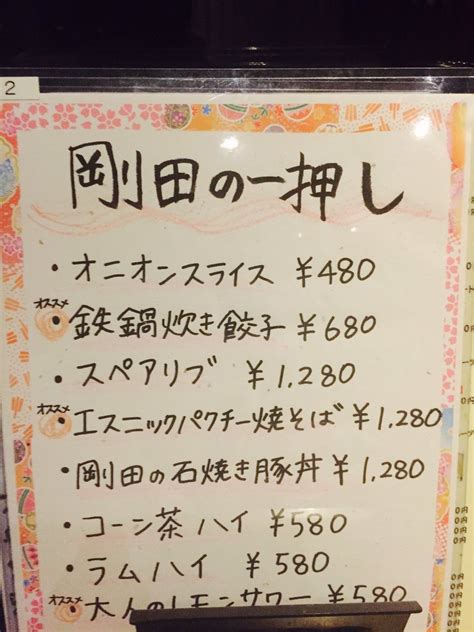 2
剛田の一押し
・オニオンスライス ¥480
オススメ
・鉄鍋炊き餃子 ¥680
・スペアリブ ¥1,280
オススメ
・エスニックパクチー焼そば ¥1,280
・剛田の石焼き豚丼 ¥1,280
・コーン茶ハイ ¥580
・ラムハイ ¥580
オススメ
・大人のレモンサワー ¥580